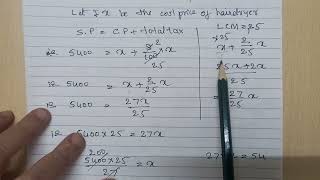 Let ₹ x be the cost price of hairdryer
S.P = C.P + total tax
ie 5400 = x + 8/100 × x
25
ie 5400 = x + 2/25 x
ie 5400 = 27x/25
ie 5400 × 25 = 27x
200
5400 × 25 / 27 = x
LCM = 25
x + 2/25 x
25x + 2x
25
= 27x/25
= 54